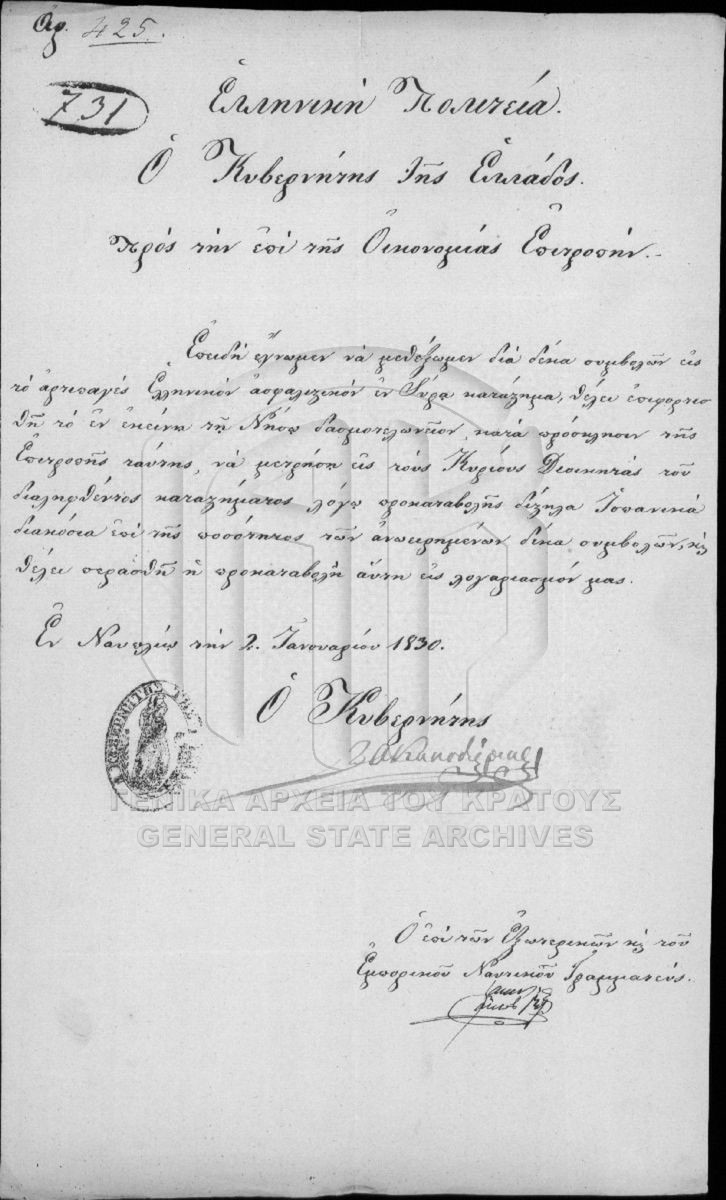 Αρ. 425.
731
Ἑλληνικὴ Πολιτεία.
Ὁ Κυβερνήτης τῆς Ἑλλάδος.
Πρὸς τὴν ἐπὶ τῆς Οἰκονομίας Ἐπιτροπήν.
Ἐπειδὴ ἔγνωμεν νὰ μεθέξωμεν διὰ δέκα συμβολῶν εἰς
τὸ ἀρτιπαγὲς Ἑλληνικὸν ἀσφαλιστικὸν ἐν Σύρᾳ κατάστημα, θέλει ἐπιφορτισ
θῆ τὸ ἐν ἐκείνῃ τῇ Νήσῳ δασμοτελωνεῖον, κατὰ πρόσκλησιν τῆς
Ἐπιτροπῆς ταύτης, νὰ μετρήσῃ εἰς τοὺς Κυρίους Διοικητὰς τοῦ
διαληφθέντος καταστήματος λόγῳ προκαταβολῆς δίστηλα Ἱσπανικὰ
διακόσια ἐπὶ τῆς ποσότητος τῶν ἀνωειρημένων δέκα συμβολῶν, κ̀
θέλει περασθῆ ἡ προκαταβολὴ αὕτη εἰς λογαριασμόν μας.
Ἐν Ναυπλίῳ τὴν 2. Ἰανουαρίου 1830.
Ὁ Κυβερνήτης
Ι. Α. Καποδίστριας
Ο ΚΥΒΕΡΝΗΤΗΣ ΤΗΣ
ΓΕΝΙΚΑ ΑΡΧΕΙΑ ΤΟΥ ΚΡΑΤΟΥΣ
GENERAL STATE ARCHIVES
Ὁ ἐπὶ τῶν Ἐξωτερικῶν κ̀ τοῦ
Ἐμπορικοῦ Ναυτικοῦ Γραμματεύς.